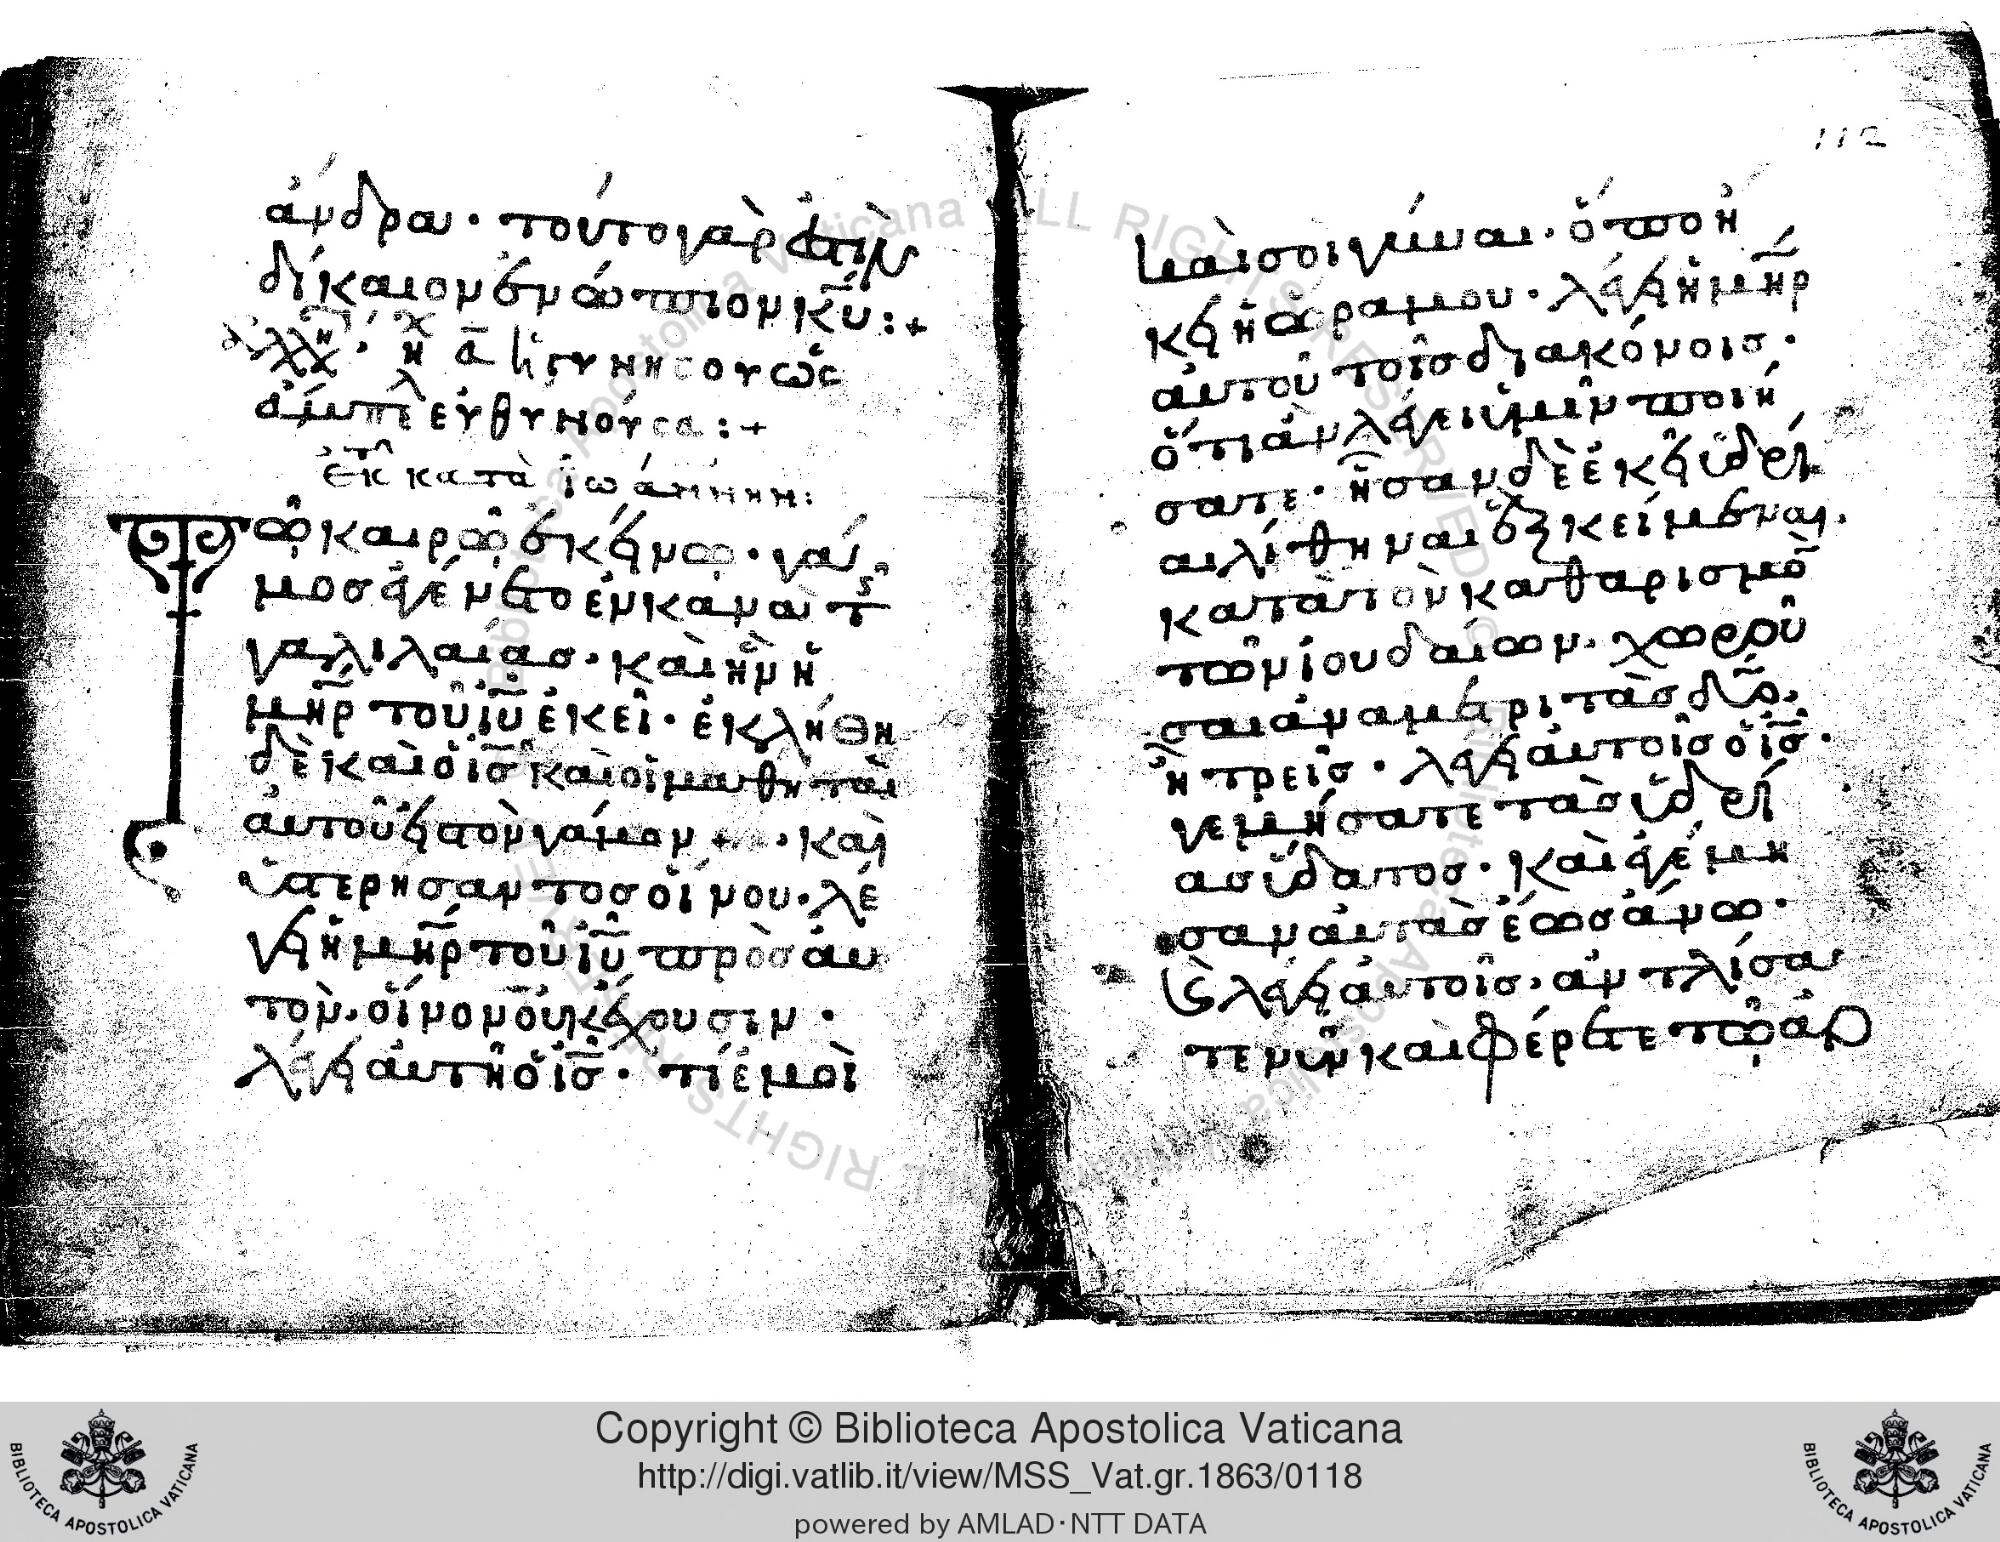 ἄνδρα· τοῦτο γὰρ ἐστὶν
δίκαιον ἐνώπιον κ̅υ̅:+
ἡ γυνή σου ὡς
ἄμπελ εὐθυνοῦσα:+
ἐκ τοῦ κατὰ ἰωάννην:
Τῶ καιρῶ ἐκείνω· γά
μος ἐγένετο ἐν κανᾶ τῆς
γαλιλαίας· καὶ ἦν ἡ
μ̅η̅ρ̅ τοῦ ι̅υ̅ ἐκεῖ· ἐκλήθη
δὲ καὶ ὁ ι̅ς̅ καὶ οἱ μαθηταὶ
αὐτοῦ εἰς τὸν γάμον· καὶ
ὑστερήσαντος οἴνου· λέ
γει ἡ μ̅η̅ρ̅ τοῦ ι̅υ̅ πρὸς αὐ
τὸν· οἶνον οὐκ ἔχουσιν·
λέγει αὐτῆ ὁ ι̅ς̅· τί ἐμοὶ
112
καὶ σοι γύναι· ὅπου ἥ
κει ἡ ὥρα μου· λέγει ἡ μ̅η̅ρ̅
αὐτοῦ τοῖς διακόνοις·
ὅτι ἂν λέγει ὑμῖν ποιή
σατε· ἦσαν δὲ ἐκεῖ ὑδρί
αι λίθηναι ἓξ κείμεναι·
κατὰ τὸν καθαρισμὸ
τῶν ἰουδαίων· χωροῦ
σαι ἀνα μετριτὰς δύο·
ἢ τρεῖς· λέγει αὐτοῖς ὁ ι̅ς̅·
γεμήσατε τὰς ὑδρί
ας ὕδατος· καὶ ἐγέμη
σαν αὐτὰς ἕως ἄνω·
καὶ λέγει αὐτοῖς· ἀντλίσα
τε νῦν καὶ φέρετε τῶ ἀρ
Copyright © Biblioteca Apostolica Vaticana
http://digi.vatlib.it/view/MSS_Vat.gr.1863/0118
powered by AMLAD·NTT DATA
BIBLIOTECA APOSTOLICA VATICANA
BIBLIOTECA APOSTOLICA VATICANA